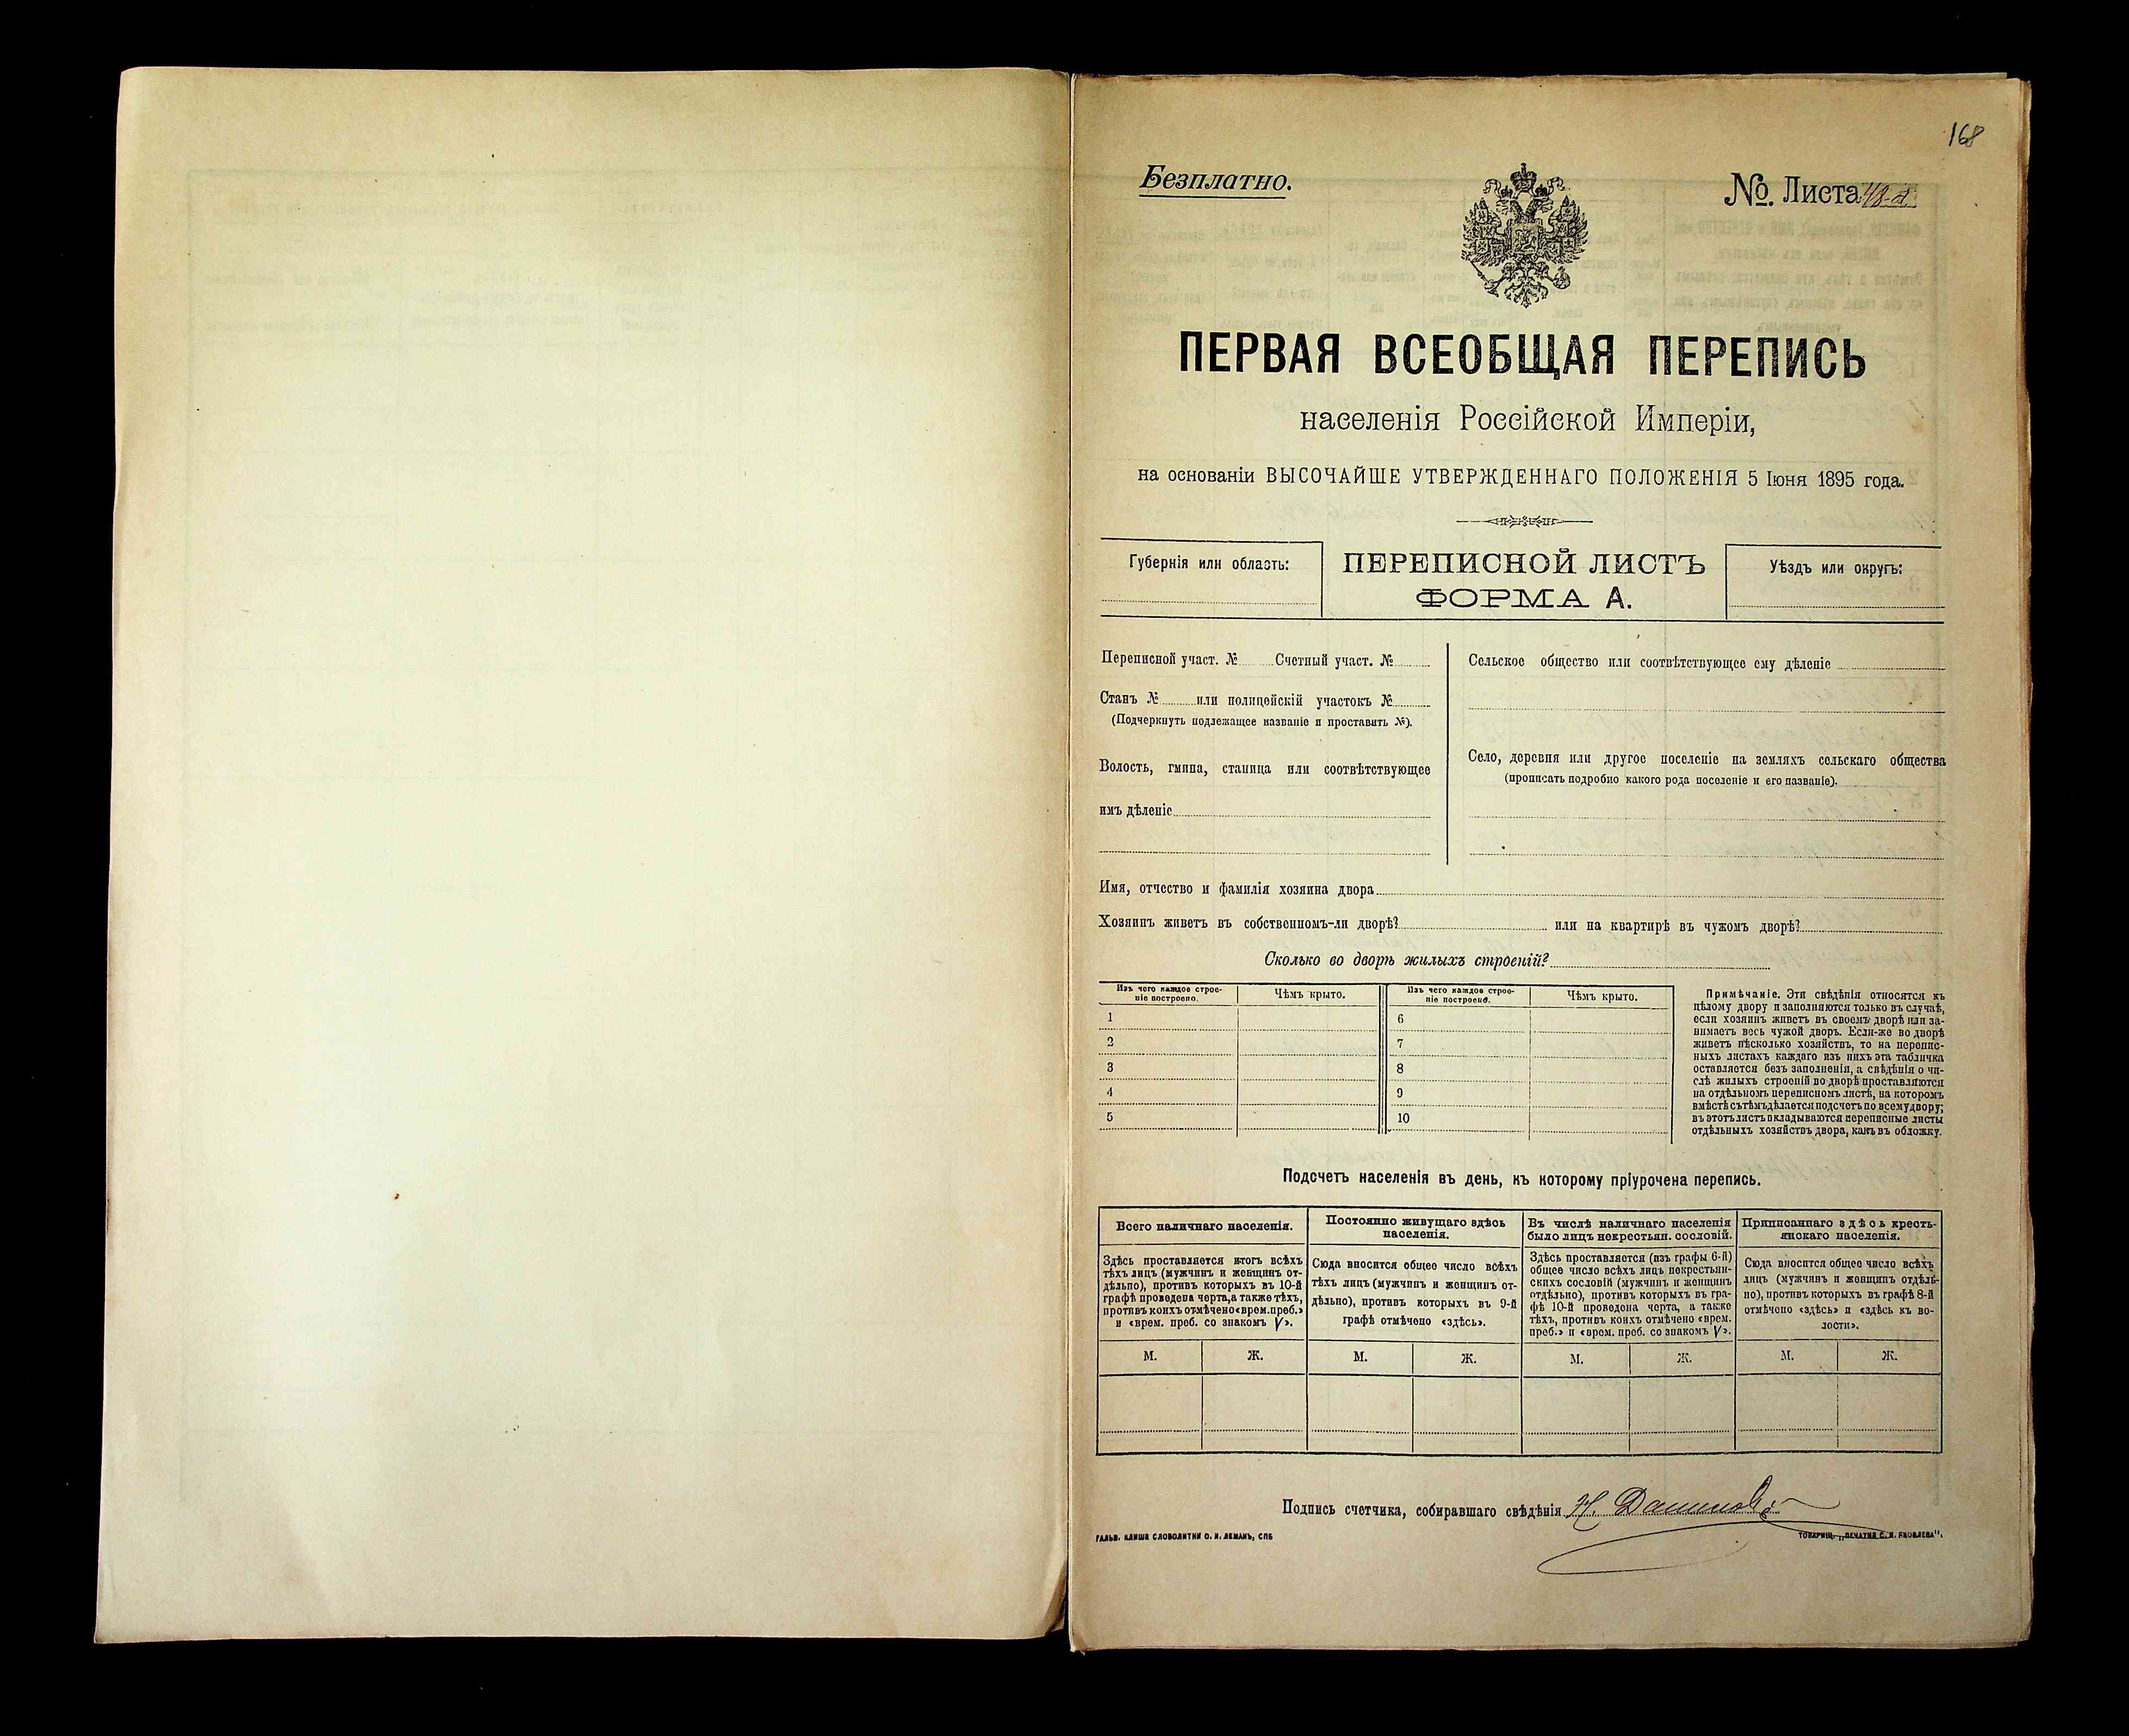 168
Безплатно.
№. Листа
ПЕРВАЯ ВСЕОБЩАЯ ПЕРЕПИСЬ
населенія Россійской Имперіи,
на основаніи ВЫСОЧАЙШЕ УТВЕРЖДЕННАГО ПОЛОЖЕНІЯ 5 Іюня 1895 года.
Губернія или область:
ПЕРЕПИСНОЙ ЛИСТЪ
ФОРМА А.
Уѣздъ или округъ:
Переписной участ. № Счетный участ. №
Станъ № или полицейскій участокъ №
(Подчеркнуть подлежащее названіе и проставить №).
Волость, гмина, станица или соотвѣтствующее
имъ дѣленіе
Сельское общество или соотвѣтствующее ему дѣленіе
Село, деревня или другое поселеніе на земляхъ сельскаго общества
(прописать подробно какого рода поселеніе и его названіе).
Имя, отчество и фамилія хозяина двора
Хозяинъ живетъ въ собственномъ-ли дворѣ? или на квартирѣ въ чужомъ дворѣ?
Сколько во дворѣ жилыхъ строеній?
Изъ чего каждое строе-
ніе построено.
Чѣмъ крыто.
Изъ чего каждое строе-
ніе построено.
Чѣмъ крыто.
1
2
3
4
5
6
7
8
9
10
Примѣчаніе. Эти свѣдѣнія относятся къ
цѣлому двору и заполняются только въ случаѣ,
если хозяинъ живетъ въ своемъ дворѣ или за-
нимаетъ весь чужой дворъ. Если-же во дворѣ
живетъ нѣсколько хозяйствъ, то на перепис-
ныхъ листахъ каждаго изъ нихъ эта табличка
оставляется безъ заполненія, а свѣдѣнія о чи-
слѣ жилыхъ строеній во дворѣ проставляются
на отдѣльномъ переписномъ листѣ, на которомъ
вмѣстѣ съ тѣмъ дѣлается подсчетъ по всему двору;
въ этотъ листъ вкладываются переписные листы
отдѣльныхъ хозяйствъ двора, какъ въ обложку.
Подсчетъ населенія въ день, къ которому пріурочена перепись.
Всего наличнаго населенія.
Здѣсь проставляется итогъ всѣхъ
тѣхъ лицъ (мужчинъ и женщинъ от-
дѣльно), противъ которыхъ въ 10-й
графѣ проведена черта, а также тѣхъ,
противъ коихъ отмѣчено «врем. преб.»
и «врем. преб. со знакомъ V».
Постоянно живущаго здѣсь
населенія.
Сюда вносится общее число всѣхъ
тѣхъ лицъ (мужчинъ и женщинъ от-
дѣльно), противъ которыхъ въ 9-й
графѣ отмѣчено «здѣсь».
Въ числѣ наличнаго населенія
было лицъ некрестьян. сословій.
Здѣсь проставляется (изъ графы 6-й)
общее число всѣхъ лицъ некрестьян-
скихъ сословій (мужчинъ и женщинъ
отдѣльно), противъ которыхъ въ гра-
фѣ 10-й проведена черта, а также
тѣхъ, противъ коихъ отмѣчено «врем.
преб.» и «врем. преб. со знакомъ V».
Приписаннаго здѣсь кресть-
янскаго населенія.
Сюда вносится общее число всѣхъ
лицъ (мужчинъ и женщинъ отдѣль-
но), противъ которыхъ въ графѣ 8-й
отмѣчено «здѣсь» и «здѣсь къ во-
лости».
М. Ж. М. Ж. М. Ж. М. Ж.
Подпись счетчика, собиравшаго свѣдѣнія
ГАЛЬВ. КЛИШЕ СЛОВОЛИТНИ О. И. ЛЕМАНЪ, СПБ
ТОВАРИЩ. „ПЕЧАТНЯ С. П. ЯКОВЛЕВА“.